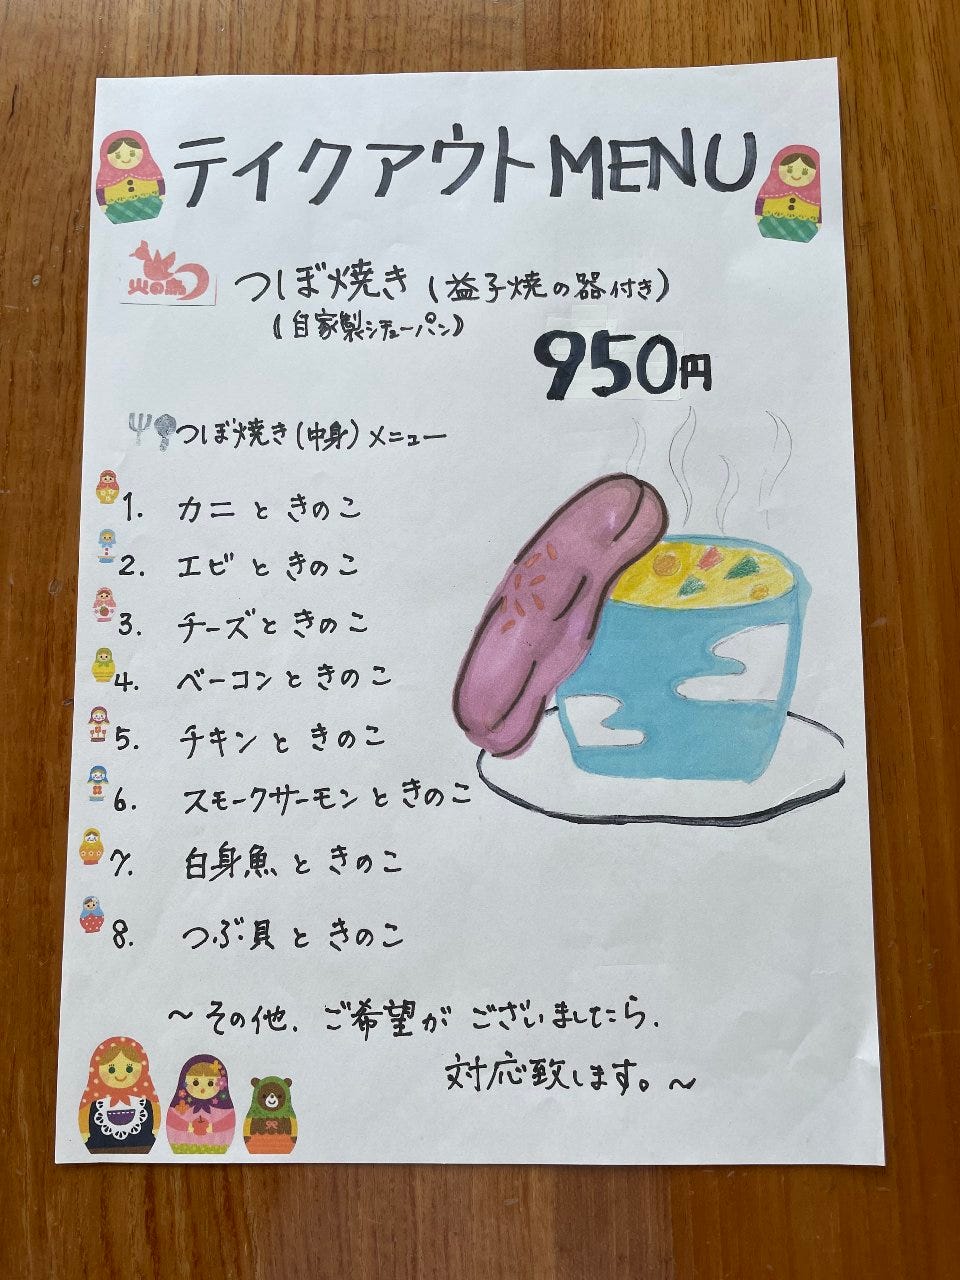 テイクアウトMENU
火の鳥
つぼ焼き(益子焼の器付き)
(自家製シチューパン)
950円
つぼ焼き(中身)メニュー
1. カニときのこ
2. エビときのこ
3. チーズときのこ
4. ベーコンときのこ
5. チキンときのこ
6. スモークサーモンときのこ
7. 白身魚ときのこ
8. つぶ貝ときのこ
~その他、ご希望がございましたら、
対応致します。~